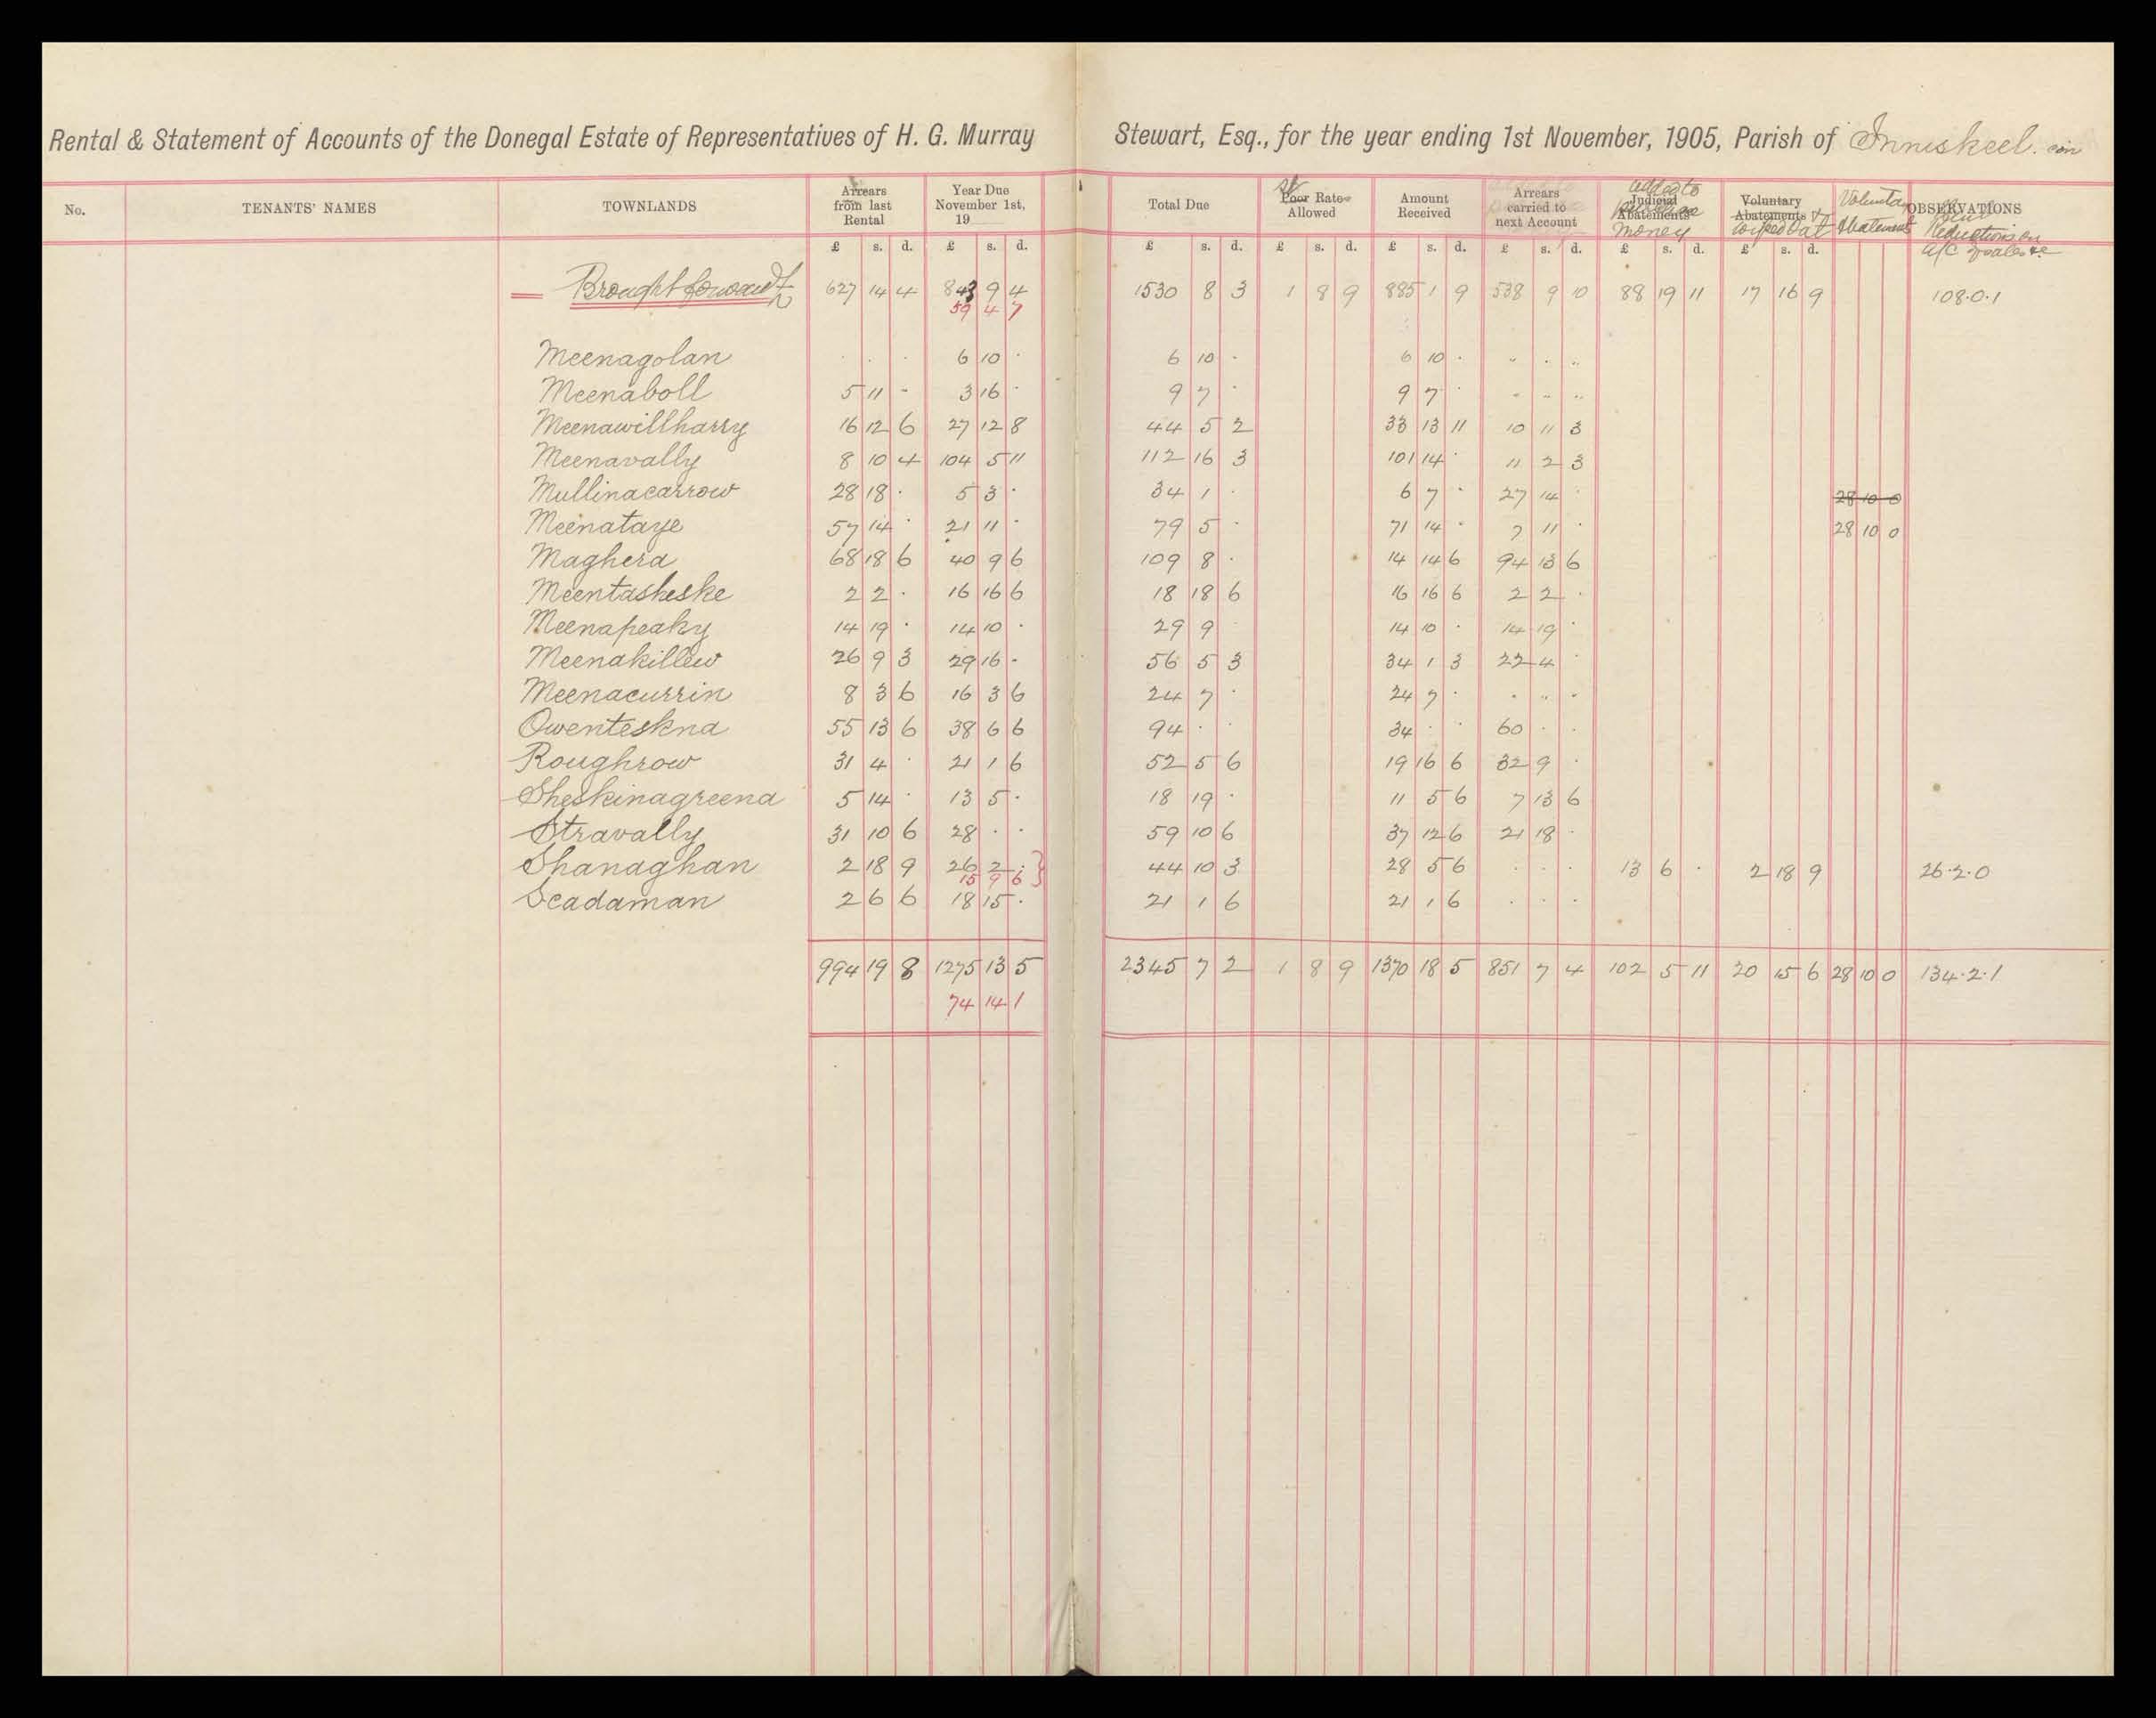 Rental & Statement of Accounts of the Donegal Estate of Representatives of H. G. Murray Stewart, Esq., for the year ending 1st November, 1905, Parish of Inniskeel. con
No. TENANTS' NAMES TOWNLANDS Arrears from last Rental Year Due November 1st, 19 Total Due Poor Rate Allowed Amount Received Arrears carried to next Account added to Judicial Abatements Purchase money Voluntary Abatements & wiped out Voluntary Abatement OBSERVATIONS Rent Reductions on A/C of sales &c
£ s. d. £ s. d. £ s. d. £ s. d. £ s. d. £ s. d. £ s. d. £ s. d.
Brought forward 627 14 4 843 9 4 1530 8 3 1 8 9 885 1 9 538 9 10 88 19 11 17 16 9 108.0.1
59 4 7
Meenagolan . . . 6 10 . 6 10 . 6 10 . .. . ..
Meenaboll 5 11 - 3 16 . 9 7 . 9 7 . . .. ..
Meenawillharry 16 12 6 27 12 8 44 5 2 33 13 11 10 11 3
Meenavally 8 10 4 104 5 11 112 16 3 101 14 . 11 2 3
Mullinacarrow 28 18 . 5 3 . 34 1 . 6 7 . 27 14 . 28 10 0
Meenataye 57 14 . 21 11 . 79 5 . 71 14 . 7 11 . 28 10 0
Maghera 68 18 6 40 9 6 109 8 . 14 14 6 94 13 6
Meentasheske 2 2 . 16 16 6 18 18 6 16 16 6 2 2 .
Meenapeaky 14 19 . 14 10 . 29 9 14 10 . 14 19 .
Meenakillew 26 9 3 29 16 . 56 5 3 34 1 3 22 4 .
Meenacurrin 8 3 6 16 3 6 24 7 . 24 7 . . .. .
Owenteskna 55 13 6 38 6 6 94 . . 34 . . 60 . .
Roughrow 31 4 . 21 1 6 52 5 6 19 16 6 32 9 .
Sheskinagreena 5 14 . 13 5 . 18 19 . 11 5 6 7 13 6
Stravally 31 10 6 28 . . 59 10 6 37 12 6 21 18 .
Shanaghan 2 18 9 26 2 . } 44 10 3 28 5 6 . . . 13 6 . 2 18 9 26.2.0
15 9 6
Scadaman 2 6 6 18 15 . 21 1 6 21 1 6 . . .
994 19 8 1275 13 5 2345 7 2 1 8 9 1370 18 5 851 7 4 102 5 11 20 15 6 28 10 0 134.2.1
74 14 1